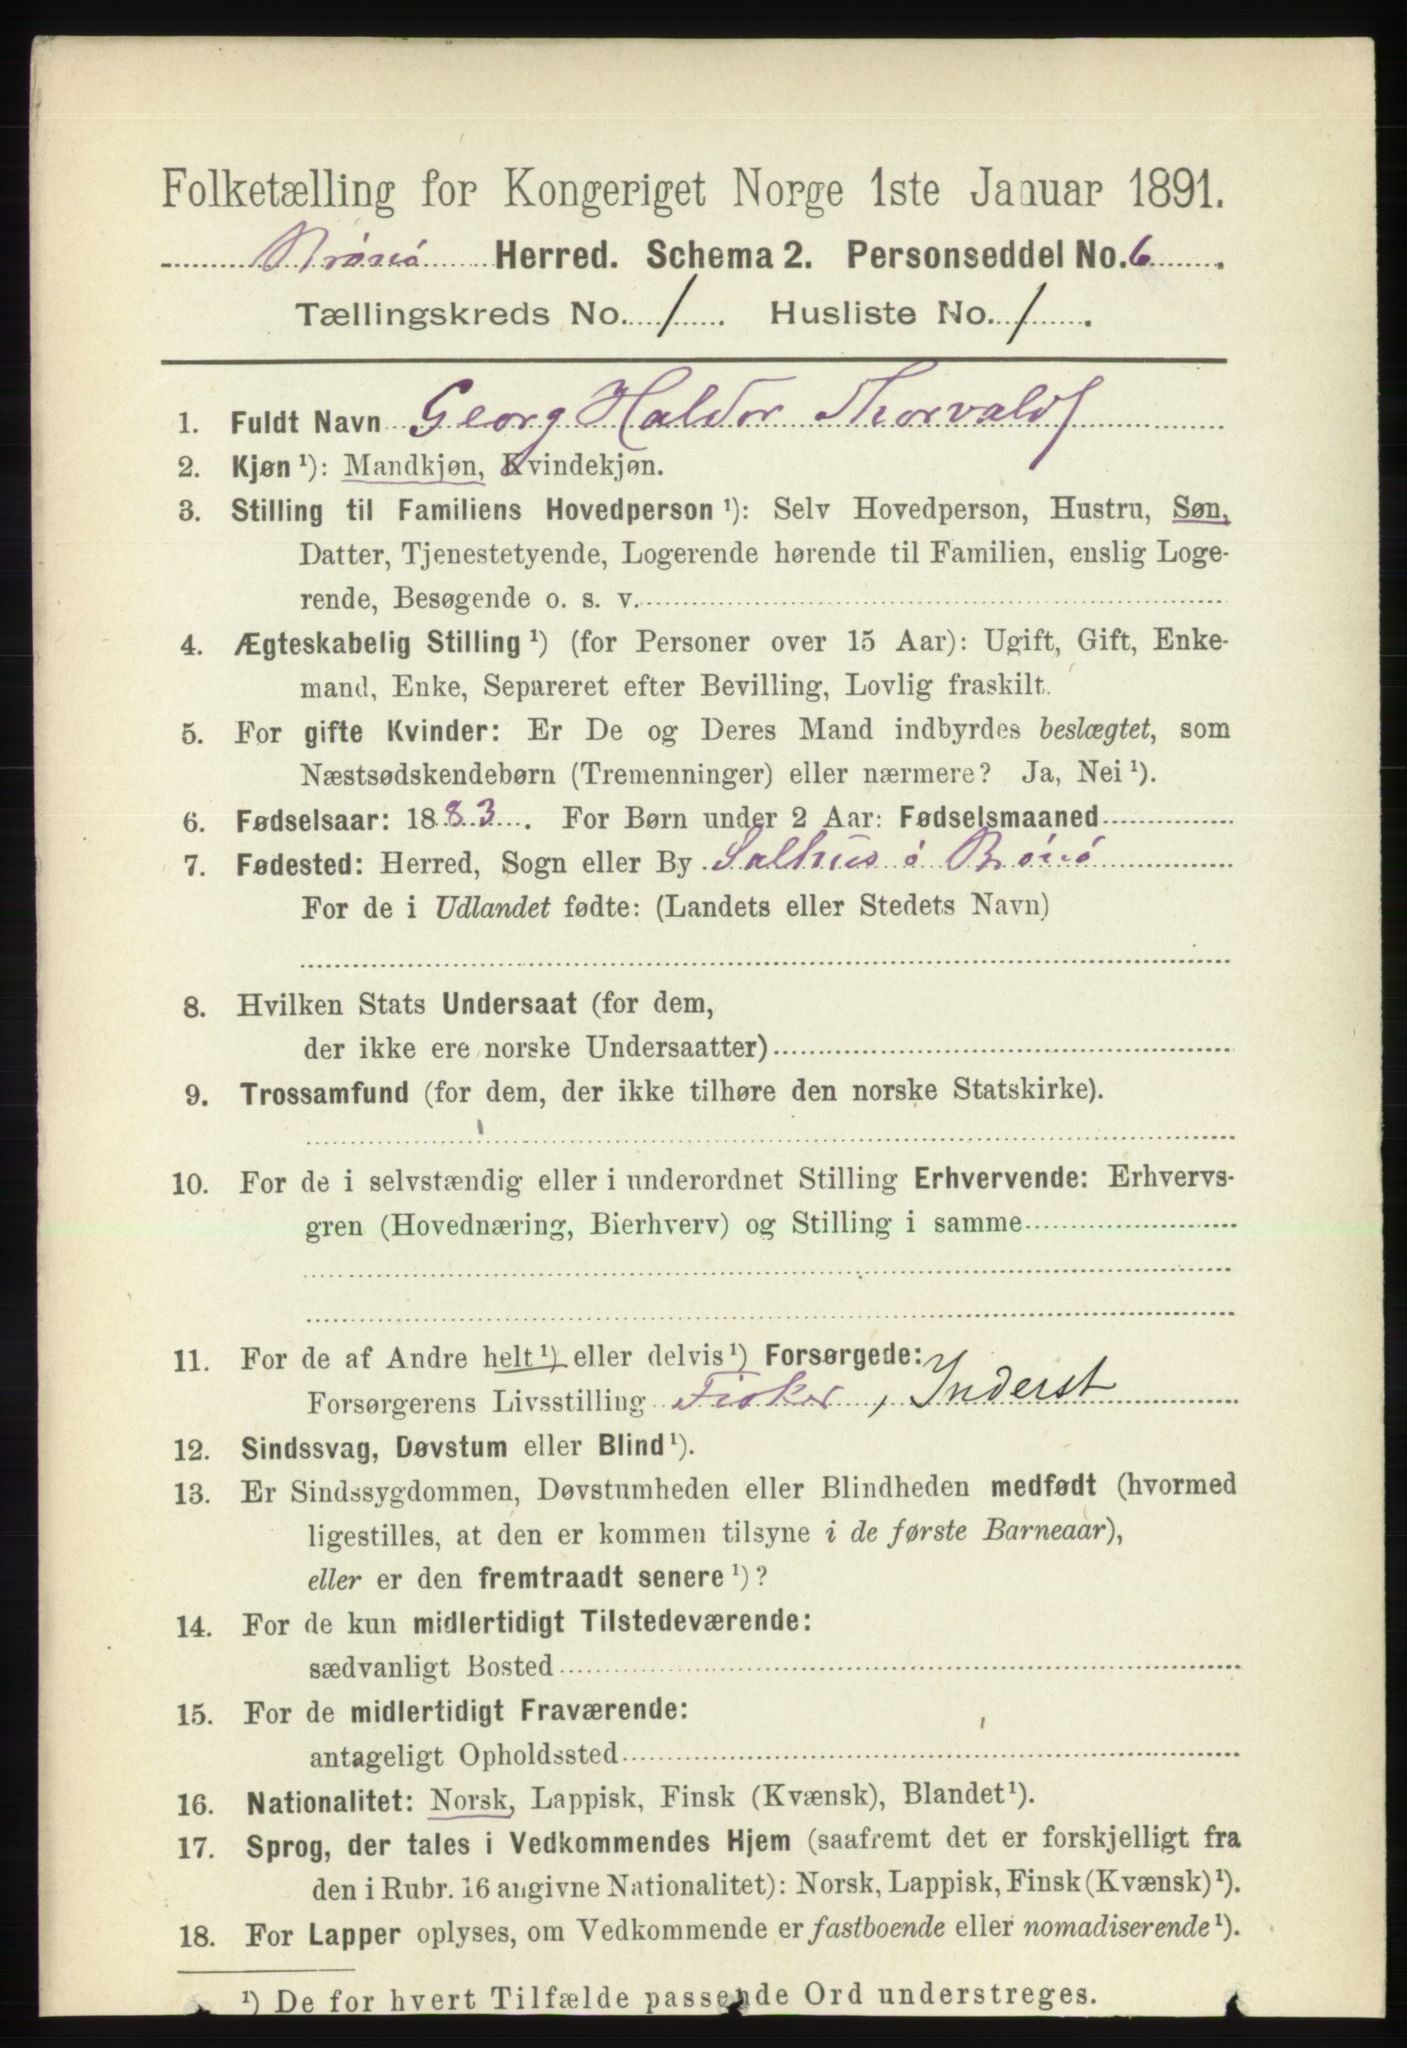 Folketælling for Kongeriget Norge 1ste Januar 1891.
Brønø Herred. Schema 2. Personseddel No. 6.
Tællingskreds No. 1. Husliste No. 1.
1. Fuldt Navn Georg Haldor Thorvalds
2. Kjøn ¹): Mandkjøn, Kvindekjøn.
3. Stilling til Familiens Hovedperson ¹): Selv Hovedperson, Hustru, Søn,
Datter, Tjenestetyende, Logerende hørende til Familien, enslig Loge-
rende, Besøgende o. s. v.
4. Ægteskabelig Stilling ¹) (for Personer over 15 Aar): Ugift, Gift, Enke-
mand, Enke, Separeret efter Bevilling, Lovlig fraskilt.
5. For gifte Kvinder: Er De og Deres Mand indbyrdes beslægtet, som
Næstsødskendebørn (Tremenninger) eller nærmere? Ja, Nei ¹).
6. Fødselsaar: 1883. For Børn under 2 Aar: Fødselsmaaned
7. Fødested: Herred, Sogn eller By Salhus ó Brønø
For de i Udlandet fødte: (Landets eller Stedets Navn)
8. Hvilken Stats Undersaat (for dem,
der ikke ere norske Undersaatter)
9. Trossamfund (for dem, der ikke tilhøre den norske Statskirke).
10. For de i selvstændig eller i underordnet Stilling Erhvervende: Erhvervs-
gren (Hovednæring, Bierhverv) og Stilling i samme
11. For de af Andre helt ¹) eller delvis ¹) Forsørgede:
Forsørgerens Livsstilling Fisker, Inderst
12. Sindssvag, Døvstum eller Blind ¹).
13. Er Sindssygdommen, Døvstumheden eller Blindheden medfødt (hvormed
ligestilles, at den er kommen tilsyne i de første Barneaar),
eller er den fremtraadt senere ¹)?
14. For de kun midlertidigt Tilstedeværende:
sædvanligt Bosted
15. For de midlertidigt Fraværende:
antageligt Opholdssted
16. Nationalitet: Norsk, Lappisk, Finsk (Kvænsk), Blandet ¹).
17. Sprog, der tales i Vedkommendes Hjem (saafremt det er forskjelligt fra
den i Rubr. 16 angivne Nationalitet): Norsk, Lappisk, Finsk (Kvænsk) ¹).
18. For Lapper oplyses, om Vedkommende er fastboende eller nomadiserende ¹).
¹) De for hvert Tilfælde passende Ord understreges.